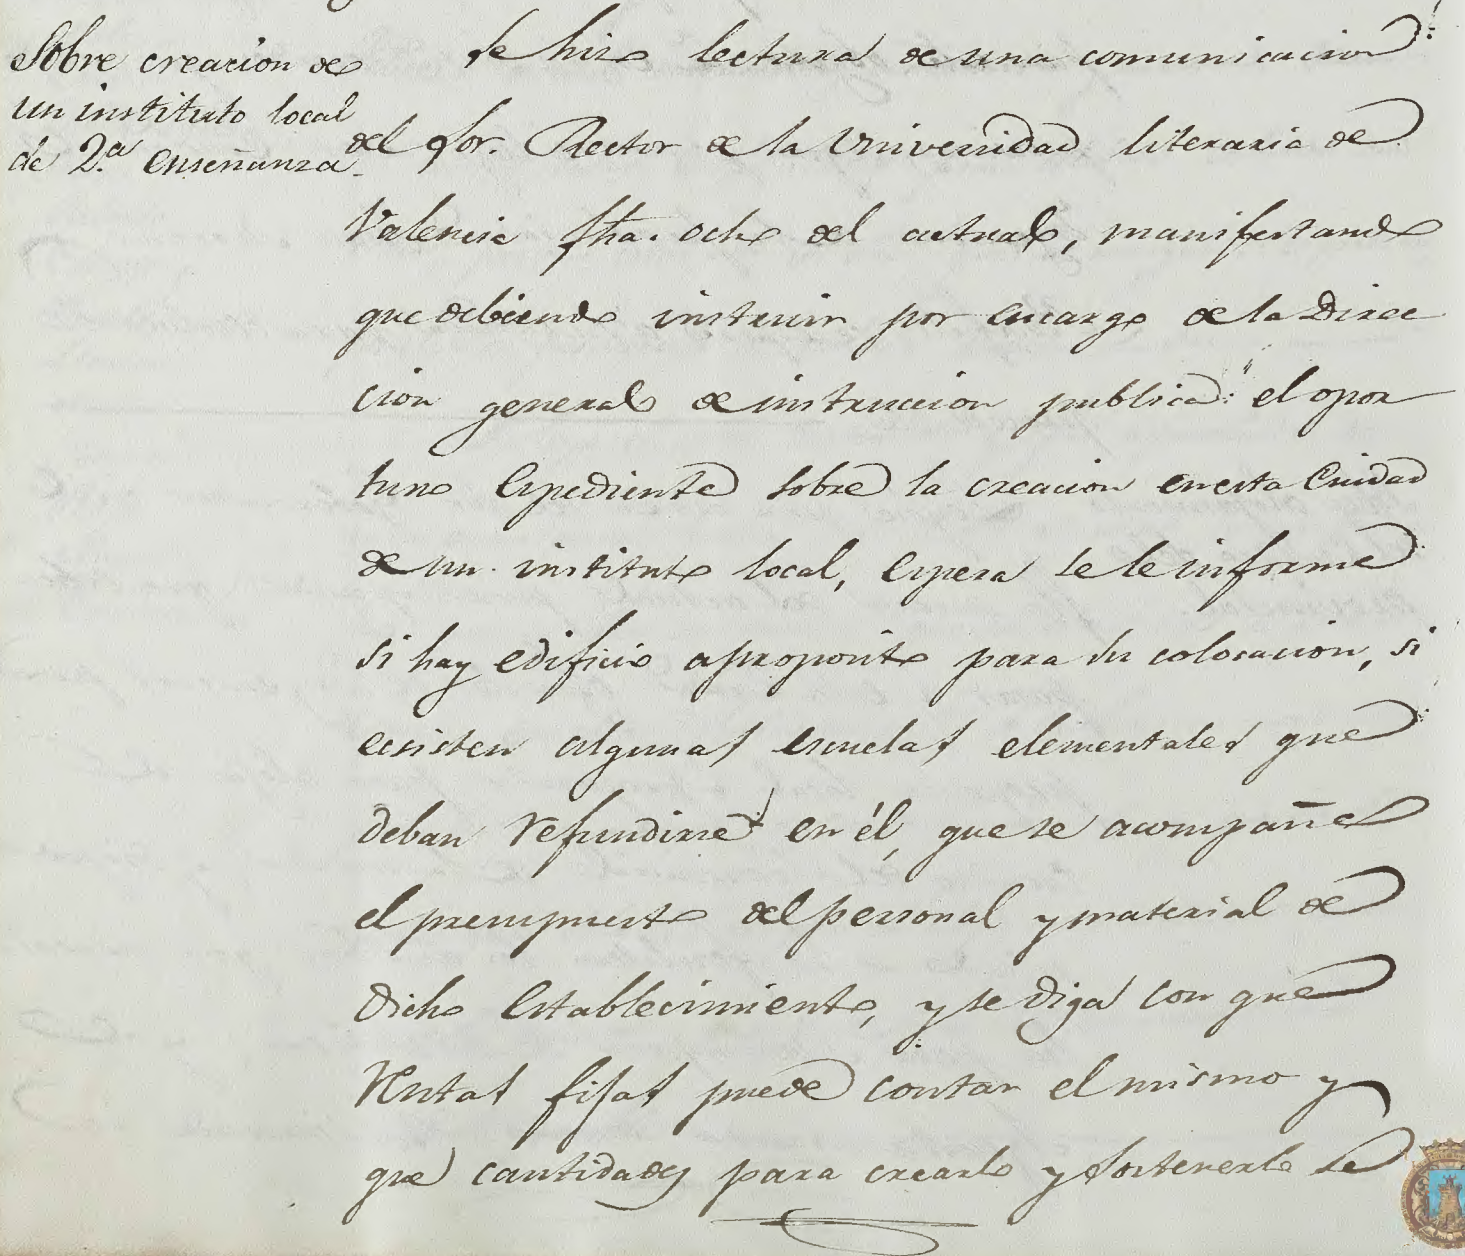 Sobre creacion de
un instituto local
de 2.ª enseñanza.
Se hizo lectura de una comunicacion
del Sor. Rector de la Universidad literaria de
Valencia fha. ocho del actual, manifestando
que debiendo instruir por encargo de la Direc
cion general de instruccion publica el opor
tuno espediente sobre la creacion en esta Ciudad
de un instituto local, espera se le informe
si hay edificio aproposito para su colocacion, si
ecsisten algunas escuelas elementales que
deban refundirse en él, que se acompañe
el presupuesto del personal y material de
dicho establecimiento, y se diga con que
rentas fijas puede contar el mismo y
que cantidades para crearlo y sostenerlo se